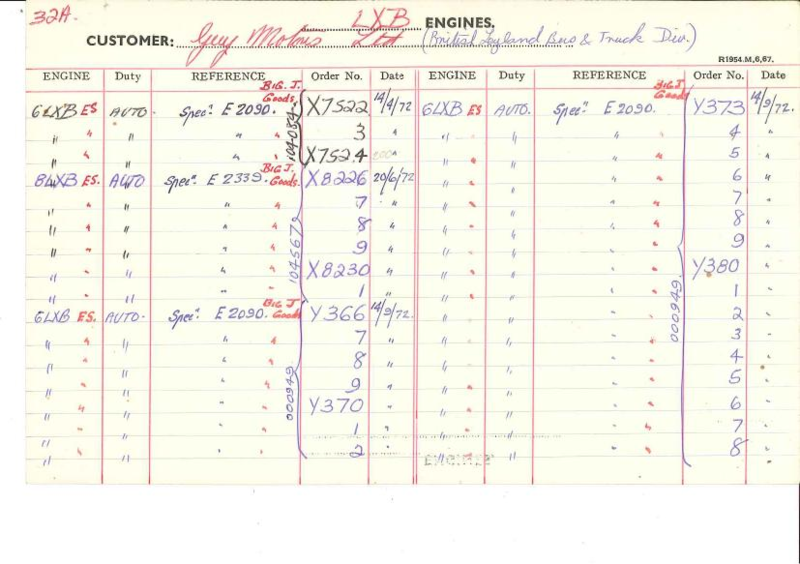 32A.
LXB ENGINES.
CUSTOMER: Guy Motors Ltd (British Leyland Bus & Truck Div.)
R1954.M,6,67.
ENGINE Duty REFERENCE Order No. Date ENGINE Duty REFERENCE Order No. Date
BIG J. BIG J
6LXB ES AUTO. Specn. E 2090. Goods. X7522 14/4/72 6LXB ES AUTO. Specn. E 2090. Goods Y373 14/9/72.
" " " " " 3 " " " " " 4 "
" " " " " X7524 " " " " " " 5 "
BIG J.
8LXB ES. AUTO Specn. E 2339. Goods. X8226 20/6/72 " " " " " 6 "
" " " " " 7 " " " " " " 7 "
" " " " " 8 " " " " " " 8 "
" " " " " 9 " " " " " " 9 "
" " " " " X8230 " " " " " " Y380 "
" " " " " 1 " " " " " " 1 "
BIG J.
6LXB ES. AUTO. Specn. E 2090. Goods Y366 14/9/72. " " " " " 2 "
" " " " " 7 " " " " " " 3 "
" " " " " 8 " " " " " " 4 "
" " " " " 9 " " " " " " 5 "
" " " " " Y370 " " " " " " 6 "
" " " " " 1 " " " " " " 7 "
" " " " " 2 " " " " " " 8 "
1045679
000949
000949.